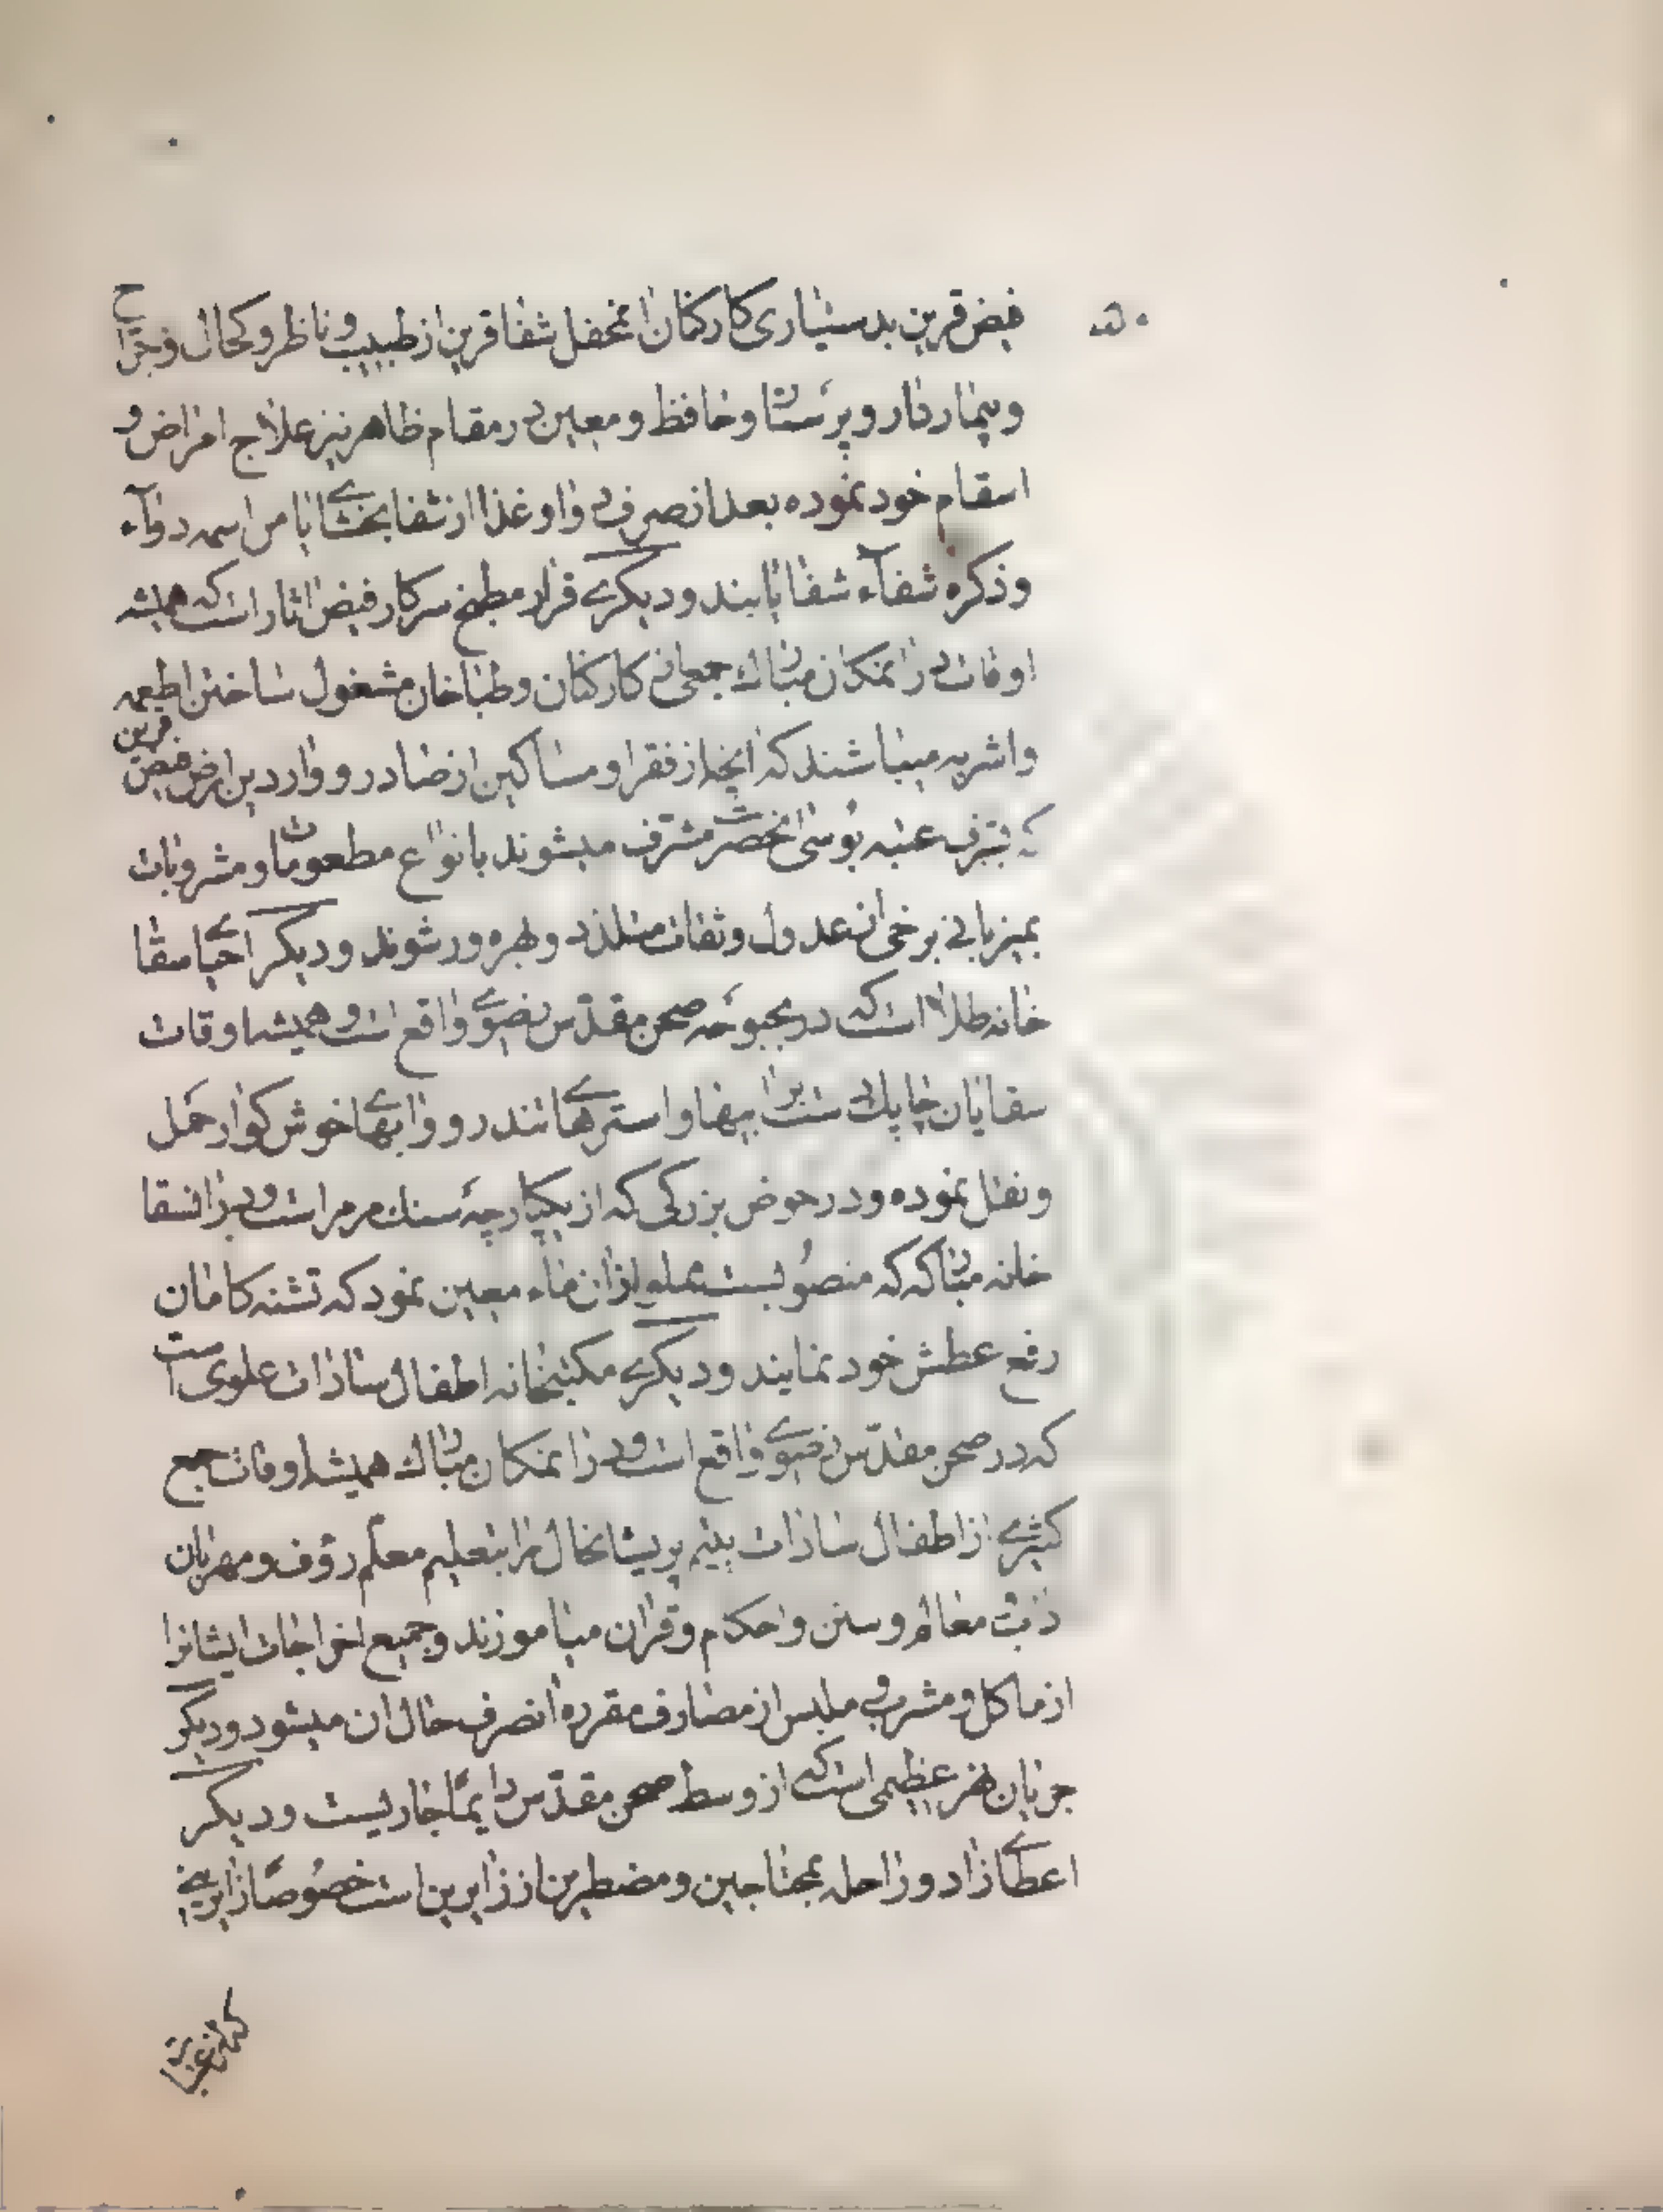 فیض قرین بدستیاری کارکنان انمحفل شفا قرین از طبیب و ناظر و کحال و جراح
و بیماردار و پرستار و حافظ و معین در مقام ظاهر نیز علاج امراض و
اسقام خود نموده بعد از صرف دوا و غذا از شفا بخشای یا من اسمه دوآء
و ذکره شفآء شفا یابند و دیگری قرار مطبخ سرکار فیض اثار است که همیشه
اوقات در انمکان مبارك جمعی از کارکنان و طباخان مشغول ساختن اطعمه
و اشربه میباشند که انچه از فقرا و مساکین از صادر و واردین ارض فیض قرین
که بشرف عتبه بوسی انحضرت مشرف میشوند بانواع مطعومات و مشروبات
بمیزبانی برخی از عدول و ثقات متلذذ و بهره ور شوند و دیگر احیای سقا
خانه طلا است که در بحبوحه صحن مقدس رضوی واقع است و همیشه اوقات
سقایان چابك دست برای بیضا و استرهای تندرو و ابهای خوش کوار حمل
و نقل نموده و در حوض بزرکی که از یکپارچه سنك مرمر است و در زیر ان سقا
خانه مبارکه که منصوبست مملو از ان ماء معین نمود که تشنه کامان
رفع عطش خود نمایند و دیگری مکتبخانه اطفال سادات علوی است
که در صحن مقدس رضوی واقع است و در انمکان مبارك همیشه اوقات جمع
کثیری از اطفال سادات یتیم پریشانحال را بتعلیم معلم رؤف و مهربان
معالم و سنن و احکام و قران میاموزند و جمیع اخراجات ایشانرا
از ماکل و مشرب و ملبس از مصارف مقرره صرف حال ان میشود و دیگر
جریان نهر عظیمی است که از وسط صحن مقدس دایما جاریست و دیگر
اعطای زاد و راحله بمحتاجین و مضطرین از زایرین است خصوصا زایرینی